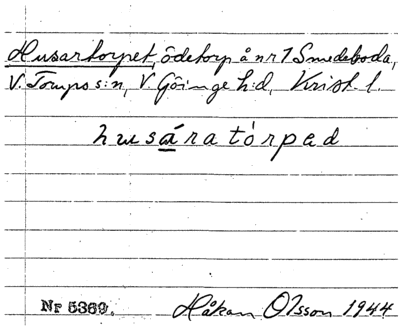 Husartorpet, ödetorp å nr 1 Smedeboda,
V. Torups s:n, V. Göinge h:d, Krist. l.
husáratòrpad
Nr 5369. Håkan Olsson 1944